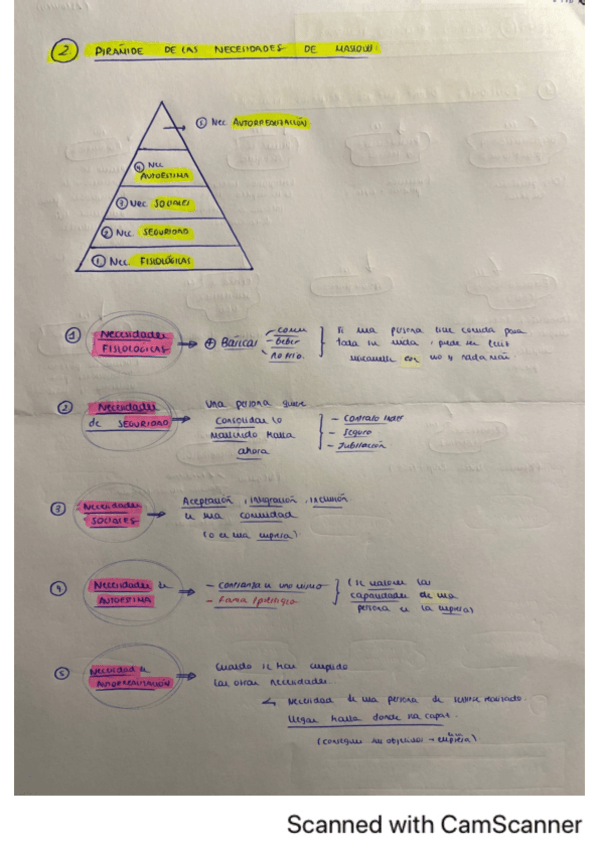 2. PIRÁMIDE DE LAS NECESIDADES DE MASLOW:
⑤ Nec AUTORREALIZACIÓN
④ Nec
AUTOESTIMA
③ Nec SOCIALES
② Nec. SEGURIDAD
① Nec. FISIOLÓGICAS
① Necesidades
FISIOLÓGICAS
→ + Básicas
- comer
- beber
- no frío.
Si una persona tiene comida para
toda su vida, puede ser feliz
solamente con eso y nada más
② Necesidades
de SEGURIDAD
→ Una persona quiere
consolidar lo
conseguido hasta
ahora
- Contrato indef
- Seguro
- Jubilación
③ Necesidades
SOCIALES
→ Aceptación, integración, inclusión
en una comunidad
(o en una empresa)
④ Necesidades de
AUTOESTIMA
→ - Confianza en uno mismo
- Fama / prestigio
(se valoren las
capacidades de una
persona en la empresa)
⑤ Necesidad de
AUTORREALIZACIÓN
→ Cuando se han cumplido
las otras necesidades.
↳ Necesidad de una persona de sentirse realizado.
Llegar hasta donde sea capaz.
(conseguir sus objetivos → empresa)
Scanned with CamScanner